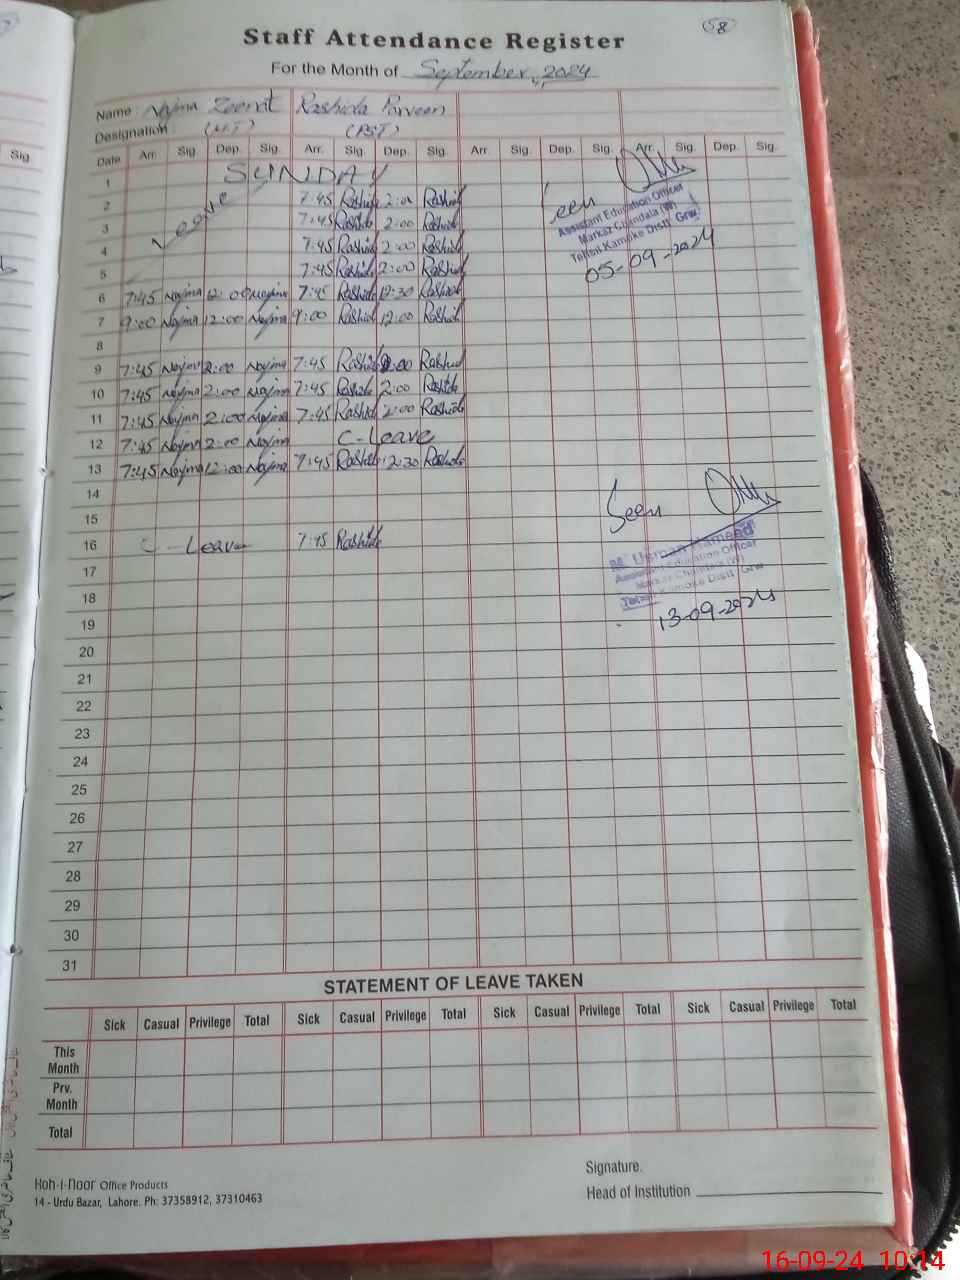 58
Staff Attendance Register
For the Month of September, 2024
Name : Najma Zeenit Rashida Parveen
Designation : (PST)
Sig
Date Arr. Sig. Dep. Sig. Arr. Sig. Dep. Sig. Arr. Sig. Dep. Sig. Arr. Sig. Dep. Sig.
1 SUNDAY
2 Leave 7:45 Rashida 2:00 Rashid
3 7:45 Rashida 2:00 Rashid
4 7:45 Rashid 2:00 Rashid
5 7:45 Rashid 2:00 Rashid
Seen
Assistant Education Officer
Markaz Chandala (W)
Tehsil Kamoke Distt Grw
05-09-2024
6 7:45 Najma 12:00 Najma 7:45 Rashid 12:30 Rashid
7 9:00 Najma 12:00 Najma 9:00 Rashid 12:00 Rashid
8
9 7:45 Najma 2:00 Najma 7:45 Rashid 2:00 Rashid
10 7:45 Najma 2:00 Najma 7:45 Rashida 2:00 Rashida
11 7:45 Najma 2:00 Najma 7:45 Rashid 2:00 Rashida
12 7:45 Najma 2:00 Najma C-Leave
13 7:45 Najma 12:00 Najma 7:45 Rashida 12:30 Rashida
14
15
16 C-Leave 7:45 Rashida
Seen
M. Usman Hameed
Assistant Education Officer
Markaz Chandala (W)
Tehsil Kamoke Distt Grw
13-09-2024
17
18
19
20
21
22
23
24
25
26
27
28
29
30
31
STATEMENT OF LEAVE TAKEN
Sick Casual Privilege Total Sick Casual Privilege Total Sick Casual Privilege Total Sick Casual Privilege Total
This Month
Prv. Month
Total
Koh-i-noor Office Products
14 - Urdu Bazar, Lahore. Ph: 37358912, 37310463
Signature.
Head of Institution
16-09-24 10:14